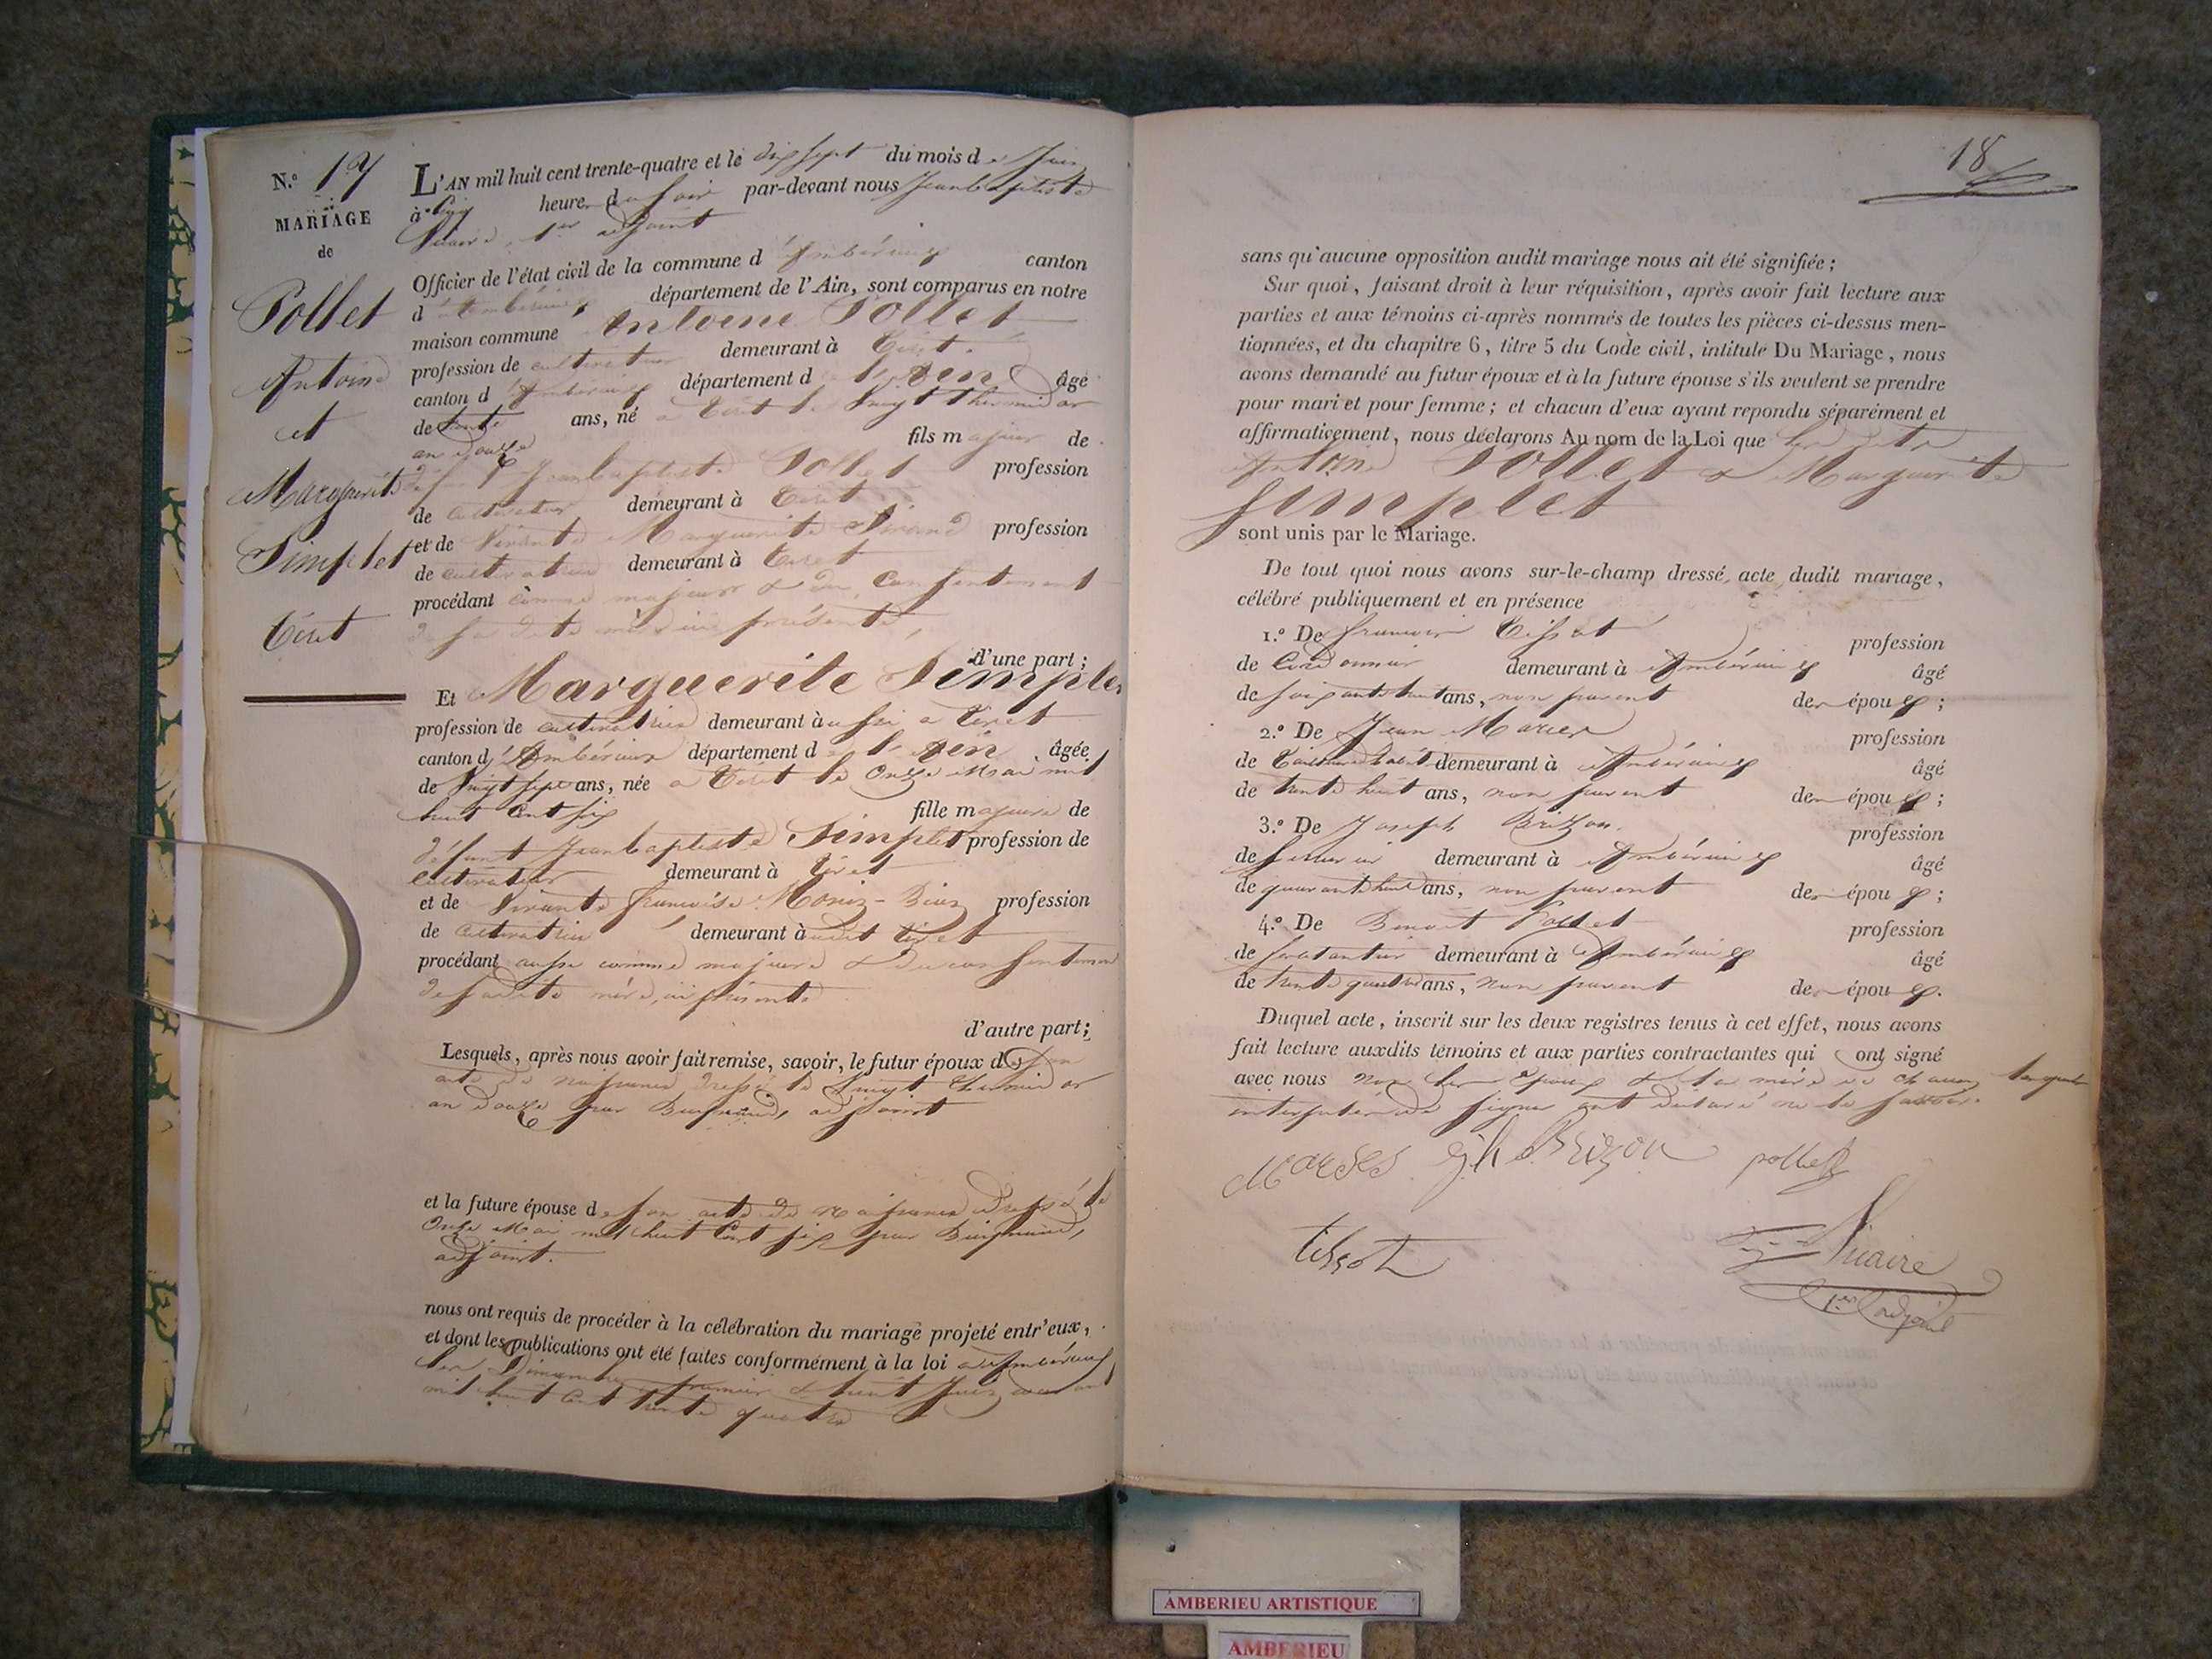 N.º 17
MARIAGE
de
Pollet
Antoine
et
Marguerite
Simplet
Tiret
L'AN mil huit cent trente-quatre et le dix sept du mois de Juin
à six heures du soir par-devant nous Jean baptiste
1er adjoint
Officier de l'état civil de la commune d'Ambérieux canton
d'Ambérieux département de l'Ain, sont comparus en notre
maison commune Antoine Pollet
profession de cultivateur demeurant à Tiret.
canton d'Ambérieux département de l'Ain âgé
de trente ans, né à Tiret le vingt thermidor
an douze fils majeur de
défunt Jean baptiste Pollet profession
de cultivateur demeurant à Tiret
et de vivante Marguerite profession
de cultivatrice demeurant à Tiret
procédant comme majeur & du consentement
de sa dite mère ici présente,
d'une part;
Et Marguerite Simplet
profession de cultivatrice demeurant aussi à Tiret
canton d'Ambérieux département de l'Ain âgée
de vingt sept ans, née à Tiret le onze Mai mil
huit cent six fille majeure de
défunt Jean baptiste Simplet profession de
cultivateur demeurant à Tiret
et de vivante françoise profession
de cultivatrice demeurant audit Tiret
procédant aussi comme majeure & du consentement
de sadite mère, ici présente
d'autre part;
Lesquels, après nous avoir fait remise, savoir, le futur époux de son
acte de naissance dressé le vingt thermidor
an douze par adjoint
et la future épouse de son acte de naissance dressé le
onze Mai mil huit cent six par
adjoint.
nous ont requis de procéder à la célébration du mariage projeté entr'eux,
et dont les publications ont été faites conformément à la loi à Ambérieux
les Dimanches premier & huit Juin courant
mil huit cent trente quatre
18
sans qu'aucune opposition audit mariage nous ait été signifiée;
Sur quoi, faisant droit à leur réquisition, après avoir fait lecture aux
parties et aux témoins ci-après nommés de toutes les pièces ci-dessus men-
tionnées, et du chapitre 6, titre 5 du Code civil, intitulé Du Mariage, nous
avons demandé au futur époux et à la future épouse s'ils veulent se prendre
pour mari et pour femme; et chacun d'eux ayant repondu séparément et
affirmativement, nous déclarons Au nom de la Loi que les dits
Antoine Pollet & Marguerite
Simplet
sont unis par le Mariage.
De tout quoi nous avons sur-le-champ dressé acte dudit mariage,
célébré publiquement et en présence
1.º De françois Tissot profession
de Cordonnier demeurant à Ambérieux âgé
de soixante huit ans, non parent des époux;
2.º De Jean profession
de Tailleur d'habits demeurant à Ambérieux âgé
de trente huit ans, non parent des époux;
3.º De Joseph Brizon profession
de demeurant à Ambérieux âgé
de quarante huit ans, non parent des époux;
4.º De Benoit Pollet profession
de demeurant à Ambérieux âgé
de trente quatre ans, non parent des époux.
Duquel acte, inscrit sur les deux registres tenus à cet effet, nous avons
fait lecture auxdits témoins et aux parties contractantes qui ont signé
avec nous non les époux & la mère de chacun lesquels
interpellés de signer ont déclaré ne le savoir.
Brizon pollet
tissot
1er adjoint
AMBERIEU ARTISTIQUE
AMBERIEU